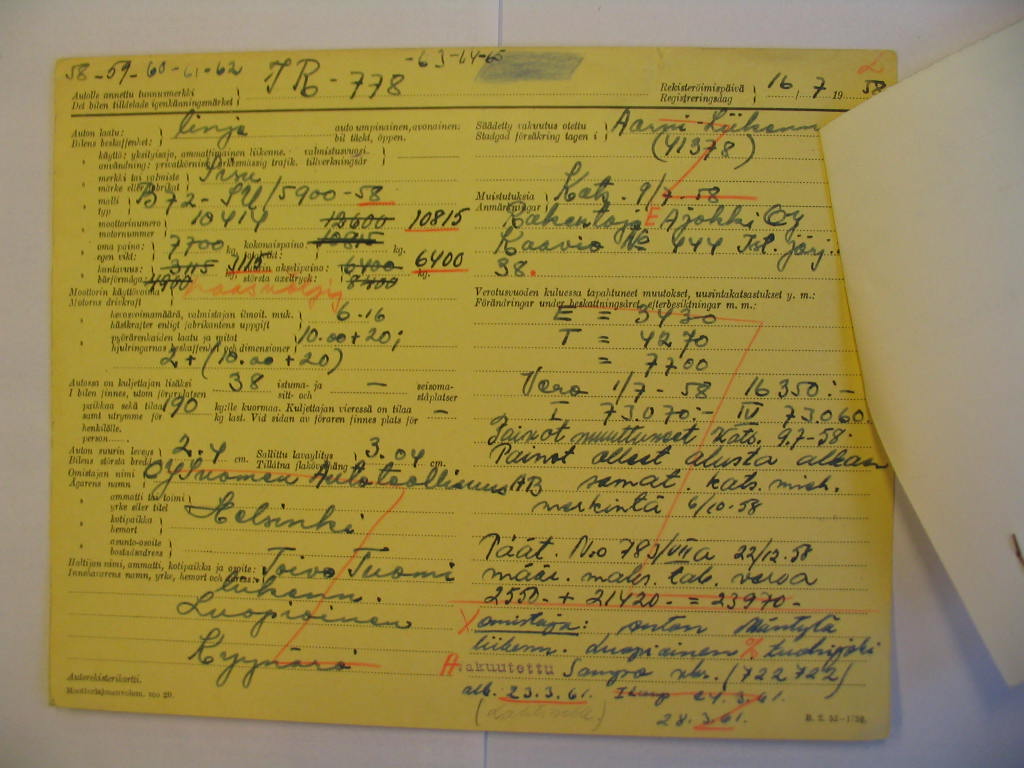 58-59-60-61-62 -63-64-65
Autolle annettu tunnusmerkki
Det bilen tilldelade igenkänningsmärket
IR-778
Rekisteröimispäivä
Registreringsdag
16/7 1958
Auton laatu: linja auto umpinainen, avonainen:
Bilens beskaffenhet: bil täckt, öppen.
käyttö: yksityisajo, ammattimainen liikenne. valmistusvuosi
användning: privatkörning, yrkesmässig trafik. tillverkningsår
merkki tai valmiste Sisu
märke eller fabrikat
malli B72-SU/5900-58
typ
moottorinumero 10414 12600 10815
motornummer 10815
oma paino: 7700 kg. kokonaispaino:
egen vikt:
kantavuus: 3115 1115 suurin akselipaino: 6400 6400 kg.
bärförmåga: 4900 största axeltryck: 8400
Moottorin käyttövoima
Motorns drivkraft
hevosvoimamäärä, valmistajan ilmoit. muk. 6-16
hästkrafter enligt fabrikantens uppgift
pyöränrenkaiden laatu ja mitat 10.00+20;
hjulringarnas beskaffenhet och dimensioner
2+(10.00+20)
Autossa on kuljettajan lisäksi 38 istuma- ja — seisoma-
I bilen finnes, utom förarplatsen sitt- och ståplatser
paikkaa sekä tilaa 190 kg:lle kuormaa. Kuljettajan vieressä on tilaa —
samt utrymme för kg last. Vid sidan av föraren finnes plats för
henkilölle.
person
Auton suurin leveys 2.4 cm. Sallittu lavaylitys 3.04 cm.
Bilens största bredd Tillåtna flaköverhäng
Omistajan nimi OY Suomen Autoteollisuus AB
Ägarens namn
ammatti tai toimi
yrke eller titel
Helsinki
kotipaikka
hemort
asunto-osoite
bostadsadress
Haltijan nimi, ammatti, kotipaikka ja osoite: Toivo Tuomi
Innehavarens namn, yrke, hemort och adress:
liikenn.
Luopioinen
Kyynärö
Autorekisterikortti.
Säädetty vakuutus otettu
Stadgad försäkring tagen i
Aarni-Liikenn
(41378)
Muistutuksia Kats. 9/7-58
Anmärkningar
Rakentaja E Ajokki Oy
Kaavio No 444 Ist. järj.
38.
Verotusvuoden kuluessa tapahtuneet muutokset, uusintakatsastukset y. m.:
Förändringar under beskattningsåret, efterbesiktningar m. m.:
E = 3430
T = 4270
= 7700
Vero 1/7-58 16350:-
I 73.070:- IV 73.060
Painot muuttuneet Kats. 9.7-58.
Painot olleet alusta alkaen
samat. kats. mieh.
merkintä 6/10-58
Päät. No 783/VII a 22/12-58
määr. maks. lab. veroa
2550- + 21420- = 23970-
omistaja: Anton Mäntylä
liikenn. Luopioinen
Vakuutettu Sampo (722722)
alk. 23.3.61. 24.3.61.
28.3.61.
B. T. 52-1752.